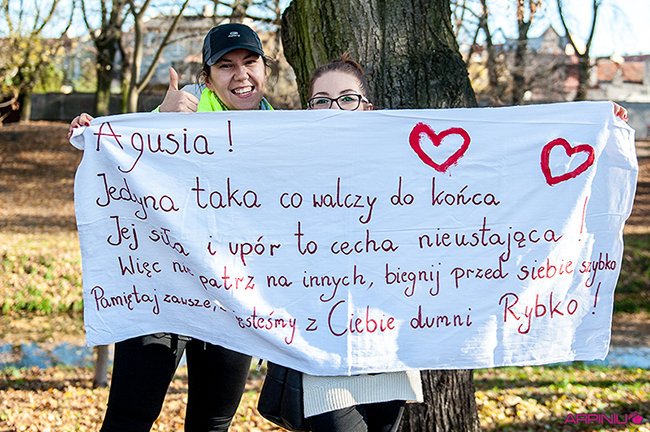 Agusia!
Jedyna taka co walczy do końca
Jej siła i upór to cecha nieustająca!
Więc nie patrz na innych, biegnij przed siebie szybko
Pamiętaj zawsze, że jesteśmy z Ciebie dumni Rybko!